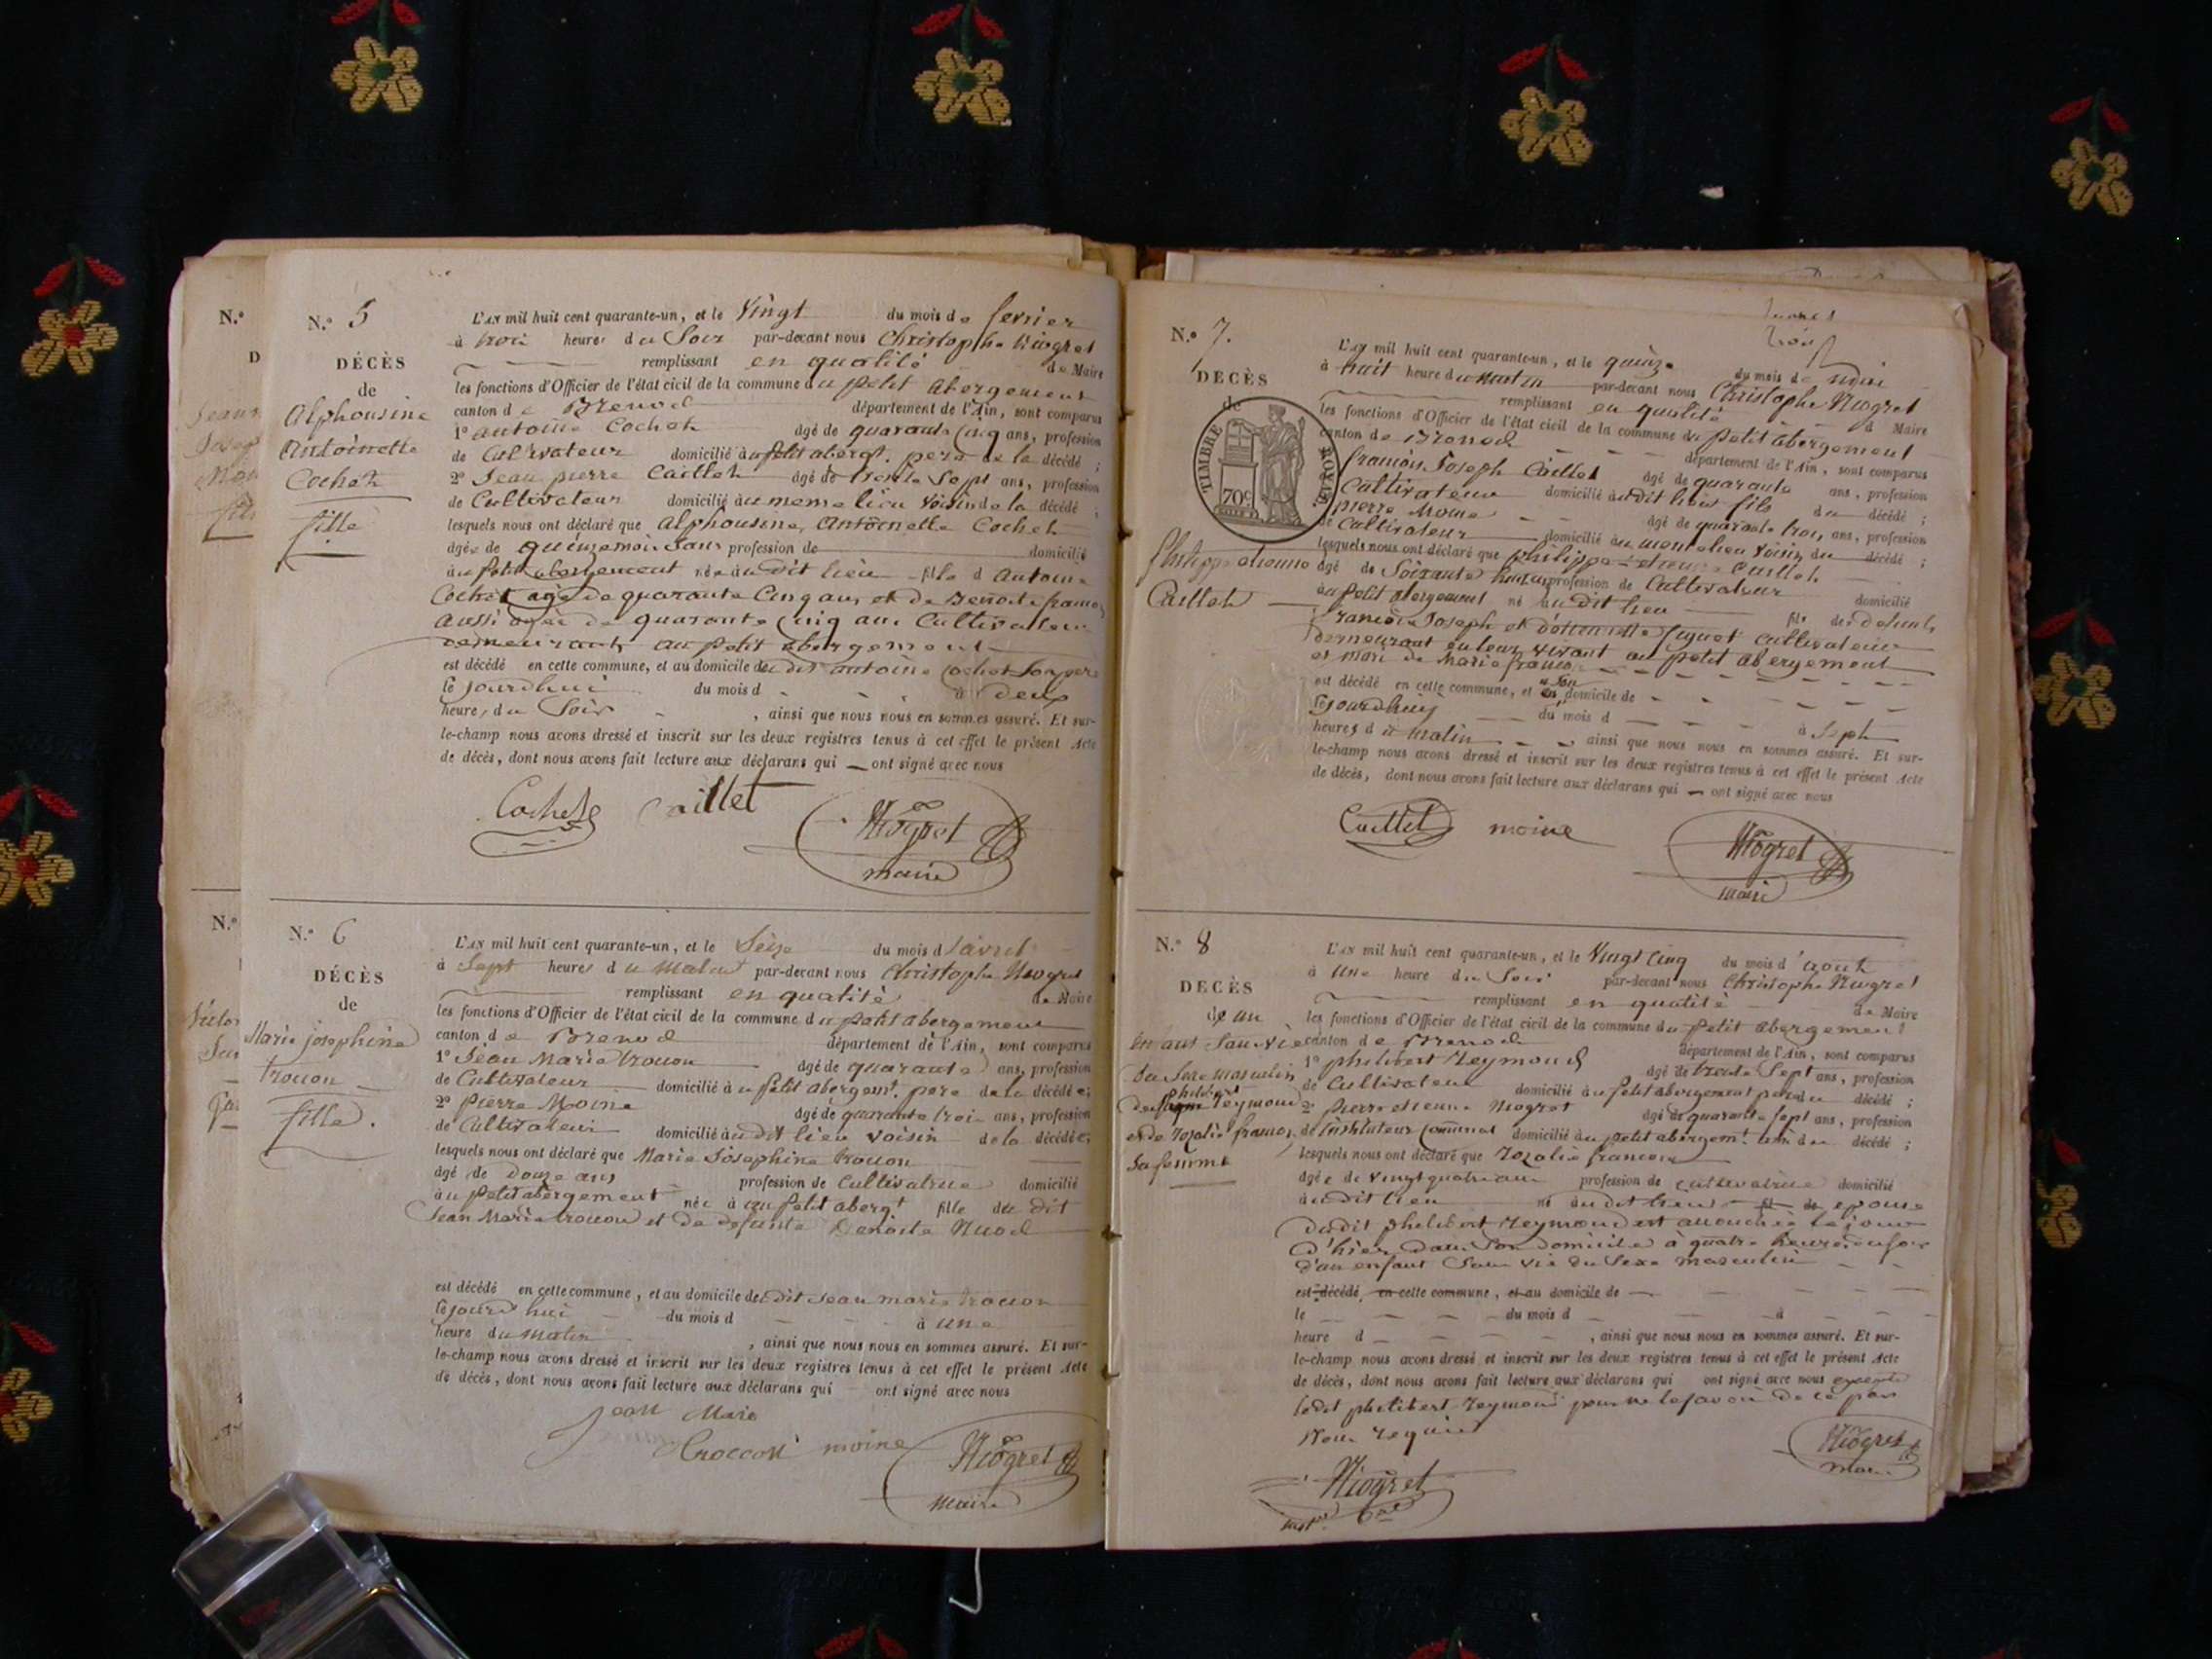 N.º 5
DÉCÈS
de
Alphonsine
Antoinette
Cochet
fille
L'AN mil huit cent quarante-un, et le Vingt du mois de fevrier
à trois heures du Soir par-devant nous Christophe Niogret
remplissant en qualité de Maire
les fonctions d'Officier de l'état civil de la commune du petit abergement
canton de Brenod département de l'Ain, sont comparus
1º antoine Cochet âgé de quarante Cinq ans, profession
de Cultivateur domicilié au petit abergt. père de la décédé ;
2º Jean pierre Caillet âgé de trente Sept ans, profession
de Cultivateur domicilié au meme lieu voisin de la décédé ;
lesquels nous ont déclaré que alphonsine antoinette Cochet
âgée de quinze mois Sans profession de domicilié
au petit abergement née au dit lieu fille d antoine
Cochet agé de quarante Cinq ans et de Benoite
aussi agée de quarante Cinq ans Cultivateurs
demeurants au petit abergement
est décédé en cette commune, et au domicile du dit antoine Cochet Son pere
le jourdhui du mois d à deux
heures du Soir , ainsi que nous nous en sommes assuré. Et sur-
le-champ nous avons dressé et inscrit sur les deux registres tenus à cet effet le présent Acte
de décès, dont nous avons fait lecture aux déclarans qui ont signé avec nous
Cochet Caillet Niogret
maire
N.º 6
DÉCÈS
de
Marie josephine
trocon
fille.
L'AN mil huit cent quarante-un, et le Seize du mois d'avril
à Sept heures du Matin par-devant nous Christophe Niogret
remplissant en qualité de Maire
les fonctions d'Officier de l'état civil de la commune du petit abergement
canton de Brenod département de l'Ain, sont comparus
1º Jean Marie trocon âgé de quarante ans, profession
de Cultivateur domicilié au petit abergemt. pere de la décédée;
2º pierre Moine âgé de quarante trois ans, profession
de Cultivateur domicilié au dit lieu voisin de la décédée;
lesquels nous ont déclaré que Marie Josephine trocon
âgé de douze ans profession de Cultivatrice domicilié
au petit abergement née à au petit abergt fille du dit
Jean Marie trocon et de defunte Benoite
est décédé en cette commune, et au domicile du dit Jean marie trocon
le jourd'hui du mois d à une
heure du matin , ainsi que nous nous en sommes assuré. Et sur-
le-champ nous avons dressé et inscrit sur les deux registres tenus à cet effet le présent Acte
de décès, dont nous avons fait lecture aux déclarans qui ont signé avec nous
Jean Marie
trocon moine Niogret
maire
N.º 7.
DÉCÈS
de
TIMBRE ROYAL
70c
Philippe etienne
Caillet
L'AN mil huit cent quarante-un, et le quinze du mois de mai
à huit heure du matin par-devant nous Christophe Niogret
remplissant en qualité d Maire
les fonctions d'Officier de l'état civil de la commune du petit abergement
canton de Brenod département de l'Ain, sont comparus
françois Joseph Caillet âgé de quarante ans, profession
Cultivateur domicilié audit lieu fils du décédé ;
pierre Moine âgé de quarante trois ans, profession
de Cultivateur domicilié au meme lieu voisin du décédé ;
lesquels nous ont déclaré que philippe etienne Caillet
âgé de Soixante profession de Cultivateur domicilié
au petit abergement né au dit lieu fils des defunts
francois Joseph et d'etiennette cultivateurs
demeurant en leur vivant au petit abergement
et Mari de Marie
est décédé en cette commune, et domicile de
le jourdhuy du mois d à Sept
heures du matin ainsi que nous nous en sommes assuré. Et sur-
le-champ nous avons dressé et inscrit sur les deux registres tenus à cet effet le présent Acte
de décès, dont nous avons fait lecture aux déclarans qui ont signé avec nous
Caillet moine Niogret
maire
N.º 8
DÉCÈS
de un
enfant Sans vie
du Sexe masculin
de philibert Reymond
et de Rozalie
Sa femme
L'AN mil huit cent quarante-un, et le Vingt Cinq du mois d'aout
à une heure du Soir par-devant nous Christophe Niogret
remplissant en qualité de Maire
les fonctions d'Officier de l'état civil de la commune du petit abergement
canton de Brenod département de l'Ain, sont comparus
1º philibert Reymond âgé de trente Sept ans, profession
de Cultivateur domicilié au petit abergement pere du décédé ;
2º pierre etienne Niogret âgé de quarante sept ans, profession
de instituteur Communal domicilié au petit abergemt. ami du décédé ;
lesquels nous ont déclaré que Rozalie
âgée de vingt quatre ans profession de cultivatrice domicilié
audit lieu né au dit lieu epouse
dudit philibert Reymond est accouchée le jour
d'hier dans son domicile à quatre heures du soir
d'un enfant Sans vie du Sexe masculin
est décédé, en cette commune, et au domicile de
le du mois d à
heure d , ainsi que nous nous en sommes assuré. Et sur-
le-champ nous avons dressé et inscrit sur les deux registres tenus à cet effet le présent Acte
de décès, dont nous avons fait lecture aux déclarans qui ont signé avec nous excepté
ledit philibert Reymond pour ne le savoir de ce par
Nous requis
Niogret
maire
Niogret